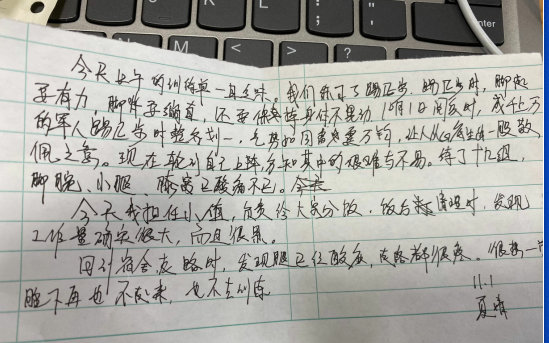 今天上午的训练单一且乏味。我们练习了踢正步，踢正步时，脚起
要有力，脚背要绷直，还要保持身体不晃动，10月1日阅兵时，成千上万
的军人踢正步时整齐划一，气势如同雷霆万钧，让人从心底生出一股敬
佩之意。现在轮到自己上阵，方知其中的艰难与不易。练了十几组，
脚腕、小腿、膝盖已酸痛不已。
今天我担任小值，负责给大家分饭，饭后清理时，发现
工作量确实很大，而且很累。
回到宿舍
时，发现腿已经酸痛，
都很疼。很想一
躺下再也不起来，也不去训练
11.1
夏